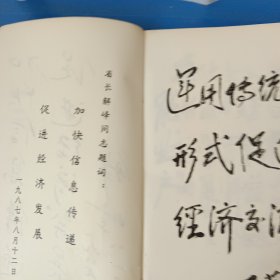 省长解峰同志题词：
加快信息传递
促进经济发展
一九八七年八月十二日
运用传统
形式促进
经济交流